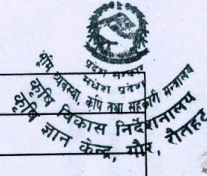 प्रदेश सरकार
मधेश प्रदेश
भूमि व्यवस्था, कृषि तथा सहकारी मन्त्रालय
कृषि विकास निर्देशनालय
कृषि ज्ञान केन्द्र, गौर, रौतहट